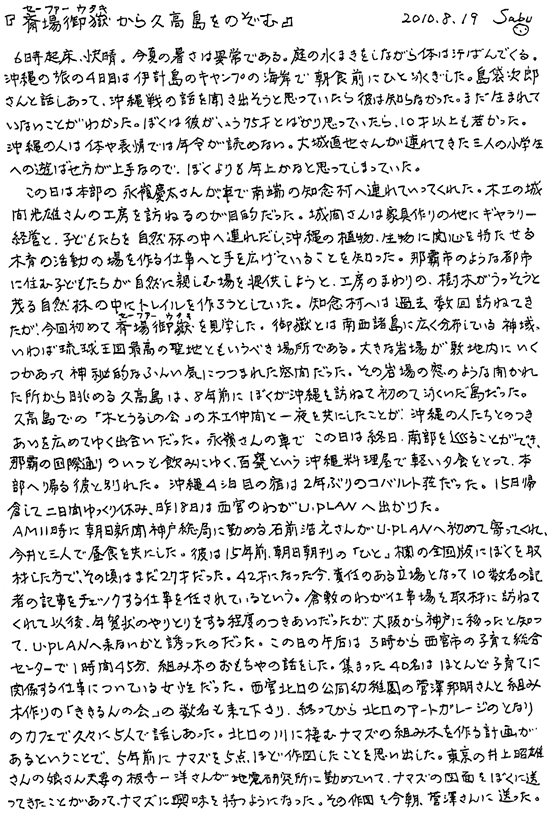 『斎場御嶽から久高島をのぞむ』 2010.8.19 Sabu
セーファー ウタキ
6時起床、快晴。今夏の暑さは異常である。庭の水まきをしながら体は汗ばんでくる。
沖縄の旅の4日目は伊計島のキャンプの海岸で朝食前にひと泳ぎした。島袋次郎
さんと話しあって、沖縄戦の話を聞き出そうと思っていたら彼は知らなかった。まだ生まれて
いないことがわかった。ぼくは彼がいう75才とばかり思っていたら、10才以上も若かった。
沖縄の人は体や表情では年令が読めない。大城直也さんが連れてきた三人の小学生
への遊ばせ方が上手なので、ぼくよりも年上かなと思ってしまっていた。
この日は本部の永嶺慶太さんが車で南端の知念村へ連れていってくれた。木工の城
間光雄さんの工房を訪ねるのが目的だった。城間さんは家具作りの他にギャラリー
経営と、子どもたちを自然林の中へ連れだし、沖縄の植物、生物に関心を持たせる
木育の活動の場を作る仕事へと手を広げていることを知った。那覇市のような都市
に住む子どもたちが自然に親しむ場を提供しようと、工房のまわりの、樹木がうっそうと
茂る自然林の中にトレイルを作ろうとしていた。知念村へは過去数回訪ねてき
たが、今回初めて斎場御嶽を見学した。御嶽とは南西諸島に広く分布している神域、
セーファー ウタキ
いわば琉球王国最高の聖地ともいうべき場所である。大きな岩場が敷地内にいく
つかあって神秘的なふんい気につつまれた空間だった。その岩場の窓のような開かれ
た所から眺める久高島は、8年前にぼくが沖縄を訪ねて初めて泳いだ島だった。
久高島での「木とうるしの会」の木工仲間と一夜を共にしたことが沖縄の人たちとのつき
あいを広めてゆく出合いだった。永嶺さんの車でこの日は終日、南部を巡ることができ、
那覇の国際通りのいつも飲みにゆく、百甕という沖縄料理屋で軽い夕食をとって、本
部へ帰る彼と別れた。沖縄4泊目の宿は2年ぶりのコバルト荘だった。15日帰
倉して二日間ゆっくり休み、昨18日は西宮のわがU.PLANへ出かけた。
AM11時に朝日新聞神戸総局に勤める石前浩之さんがU.PLANへ初めて寄ってくれ、
今井と三人で昼食を共にした。彼は15年前、朝日朝刊の「ひと」欄の全国版にぼくを取
材した方で、その頃はまだ27才だった。42才になった今、責任のある立場となって10数名の記
者の記事をチェックする仕事を任されているという。倉敷のわが仕事場を取材に訪ねて
くれて以後、年賀状のやりとりをする程度のつきあいだったが、大阪から神戸に移ったと知っ
て、U.PLANへ来ないかと誘ったのだった。この日の午后は3時から西宮市の子育て総合
センターで1時間45分、組み木のおもちゃの話をした。集まった40名はほとんど子育てに
関係する仕事についている女性だった。西宮北口の公同幼稚園の菅澤邦明さんと組み
木作りの「ききるんの会」の数名も来て下さり、終ってから北口のアートガレージのとなり
のカフェで久々に5人で話しあった。北口の川に棲むナマズの組み木を作る計画が
あるということで、5年前にナマズを5点ほど作図したことを思い出した。東京の井上昭雄
さんの娘さん夫妻の板寺一洋さんが地震研究所に勤めていて、ナマズの図面をぼくに送
ってきたことがあって、ナマズに興味を持つようになった。その作図を今朝、菅澤さんに送った。